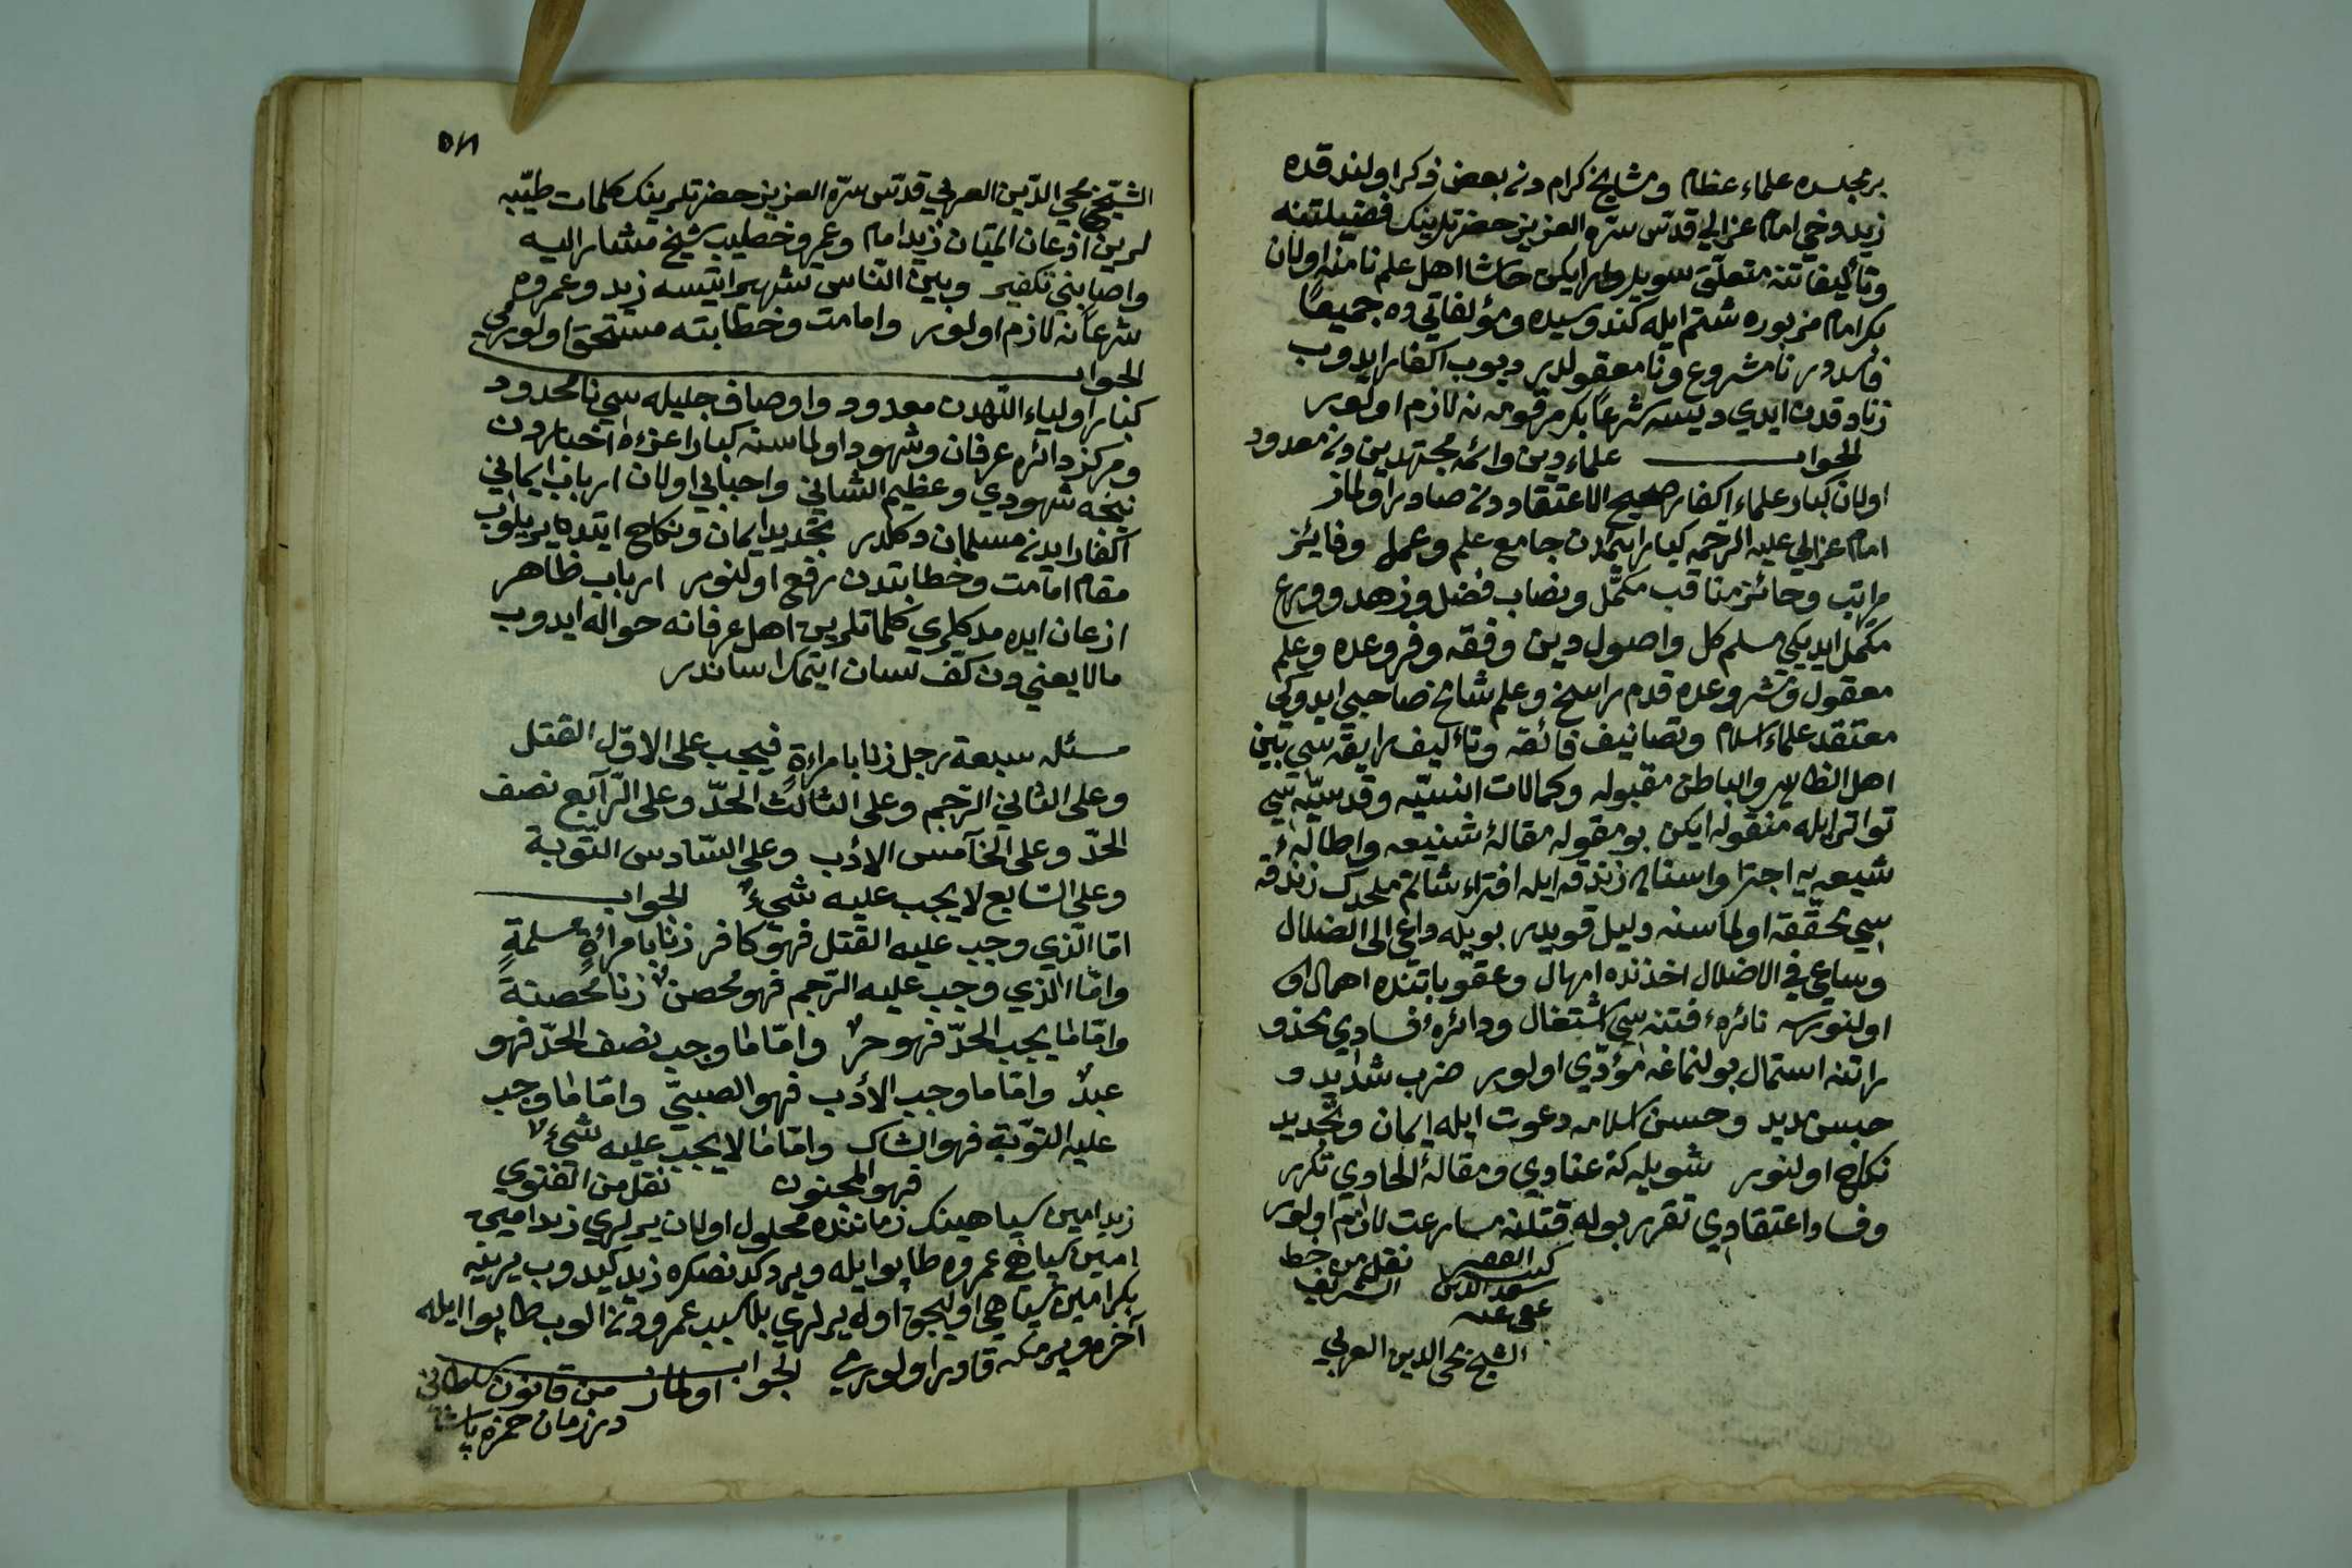 بر مجلسده علماء عظام ومشایخ کرامدن بعض ذکر اولندقده
زید وخی امام غزالي قدّس سرّه العزیز حضرتلرینک فضیلتنه
وتألیفاتنه متعلّق سویلرلر ایکن حاشا اهل علم نامنه اولان
بکر امام مزبوره شتم ایله کندوسیده ومؤلفاتي ده جمیعاً
فاسددر نامشروع ونامعقولدر دیوب اکفار ایدوب
زنادقدن ایدي دیسه شرعاً بکر مرقومه نه لازم اولور
الجواب علماء دین وائمّه مجتهدیندن معدود
اولان کبار علماء اکفار صحیح الاعتقاددن صادر اولماز
امام غزالي علیه الرّحمه کبار ائمّه‌دن جامع علم وعمل وفائز
مراتب وحائز مناقب مکمّل ونصاب فضل وزهد وورع
مکمّل ایدیکي مسلم کل واصول دین وفقه وفروعده وعلم
معقول ومشروعده قدم راسخ وعلم شامخ صاحبي ایدوکي
معتقد علماء اسلام وتصانیف فائقه وتألیف رایقه‌سي بین
اهل الظاهر والباطن مقبوله وکمالات انسیّه وقدسیّه‌سي
تواتر ایله منقوله ایکن بو مقوله مقالهٔ شنیعه واطالهٔ
شیعه‌یه اجترا واسناد زندقه ایله افتراء شاتم ملحدک زندقه
سي محقّقه اولماسنه دلیل قویدر بویله داعي الی الضلال
وساعي في الاضلال اخذنده امهال وعقوباتنده اهمال
اولنورسه نائرهٔ فتنه‌سي اشتغال ودائرهٔ فسادي
راتنه استمال بولنماغه مؤدّي اولور ضرب شدید و
حبس مدید وحسن اسلامه دعوت ایله ایمان وتجدید
نکاح اولنور شویله که عنادي ومقالهٔ الحادي تکرر
وفساد اعتقادي تقرر بوله قتلنه مسارعت لازم اولور
کتبه الفقیر نقل من خط
سعد الدین الشریف
عفي عنه
الشیخ محي الدین العربي
٥٨
الشیخ محي الدّین العربي قدّس سرّه العزیز حضرتلرینک کلمات طیّبه
لرین اذعان ایتمیان زید امام وعمرو خطیب شیخ مشار الیه
واصابني تکفیر وبین النّاس تشهیر ایتسه زید وعمروه
شرعاً نه لازم اولور وامامت وخطابته مستحق اولورلرمي
الجواب
کبار اولیاء اللّهدن معدود واوصاف جلیله‌سي نامحدود
ومرکز دائره عرفان وشهود اولماسنه کبار اعزّه اخیاردن
نیجه شهودي وعظیم الشاني واحبابي اولان ارباب ایماني
اکفار ایدن مسلمان دکلدر تجدید ایمان ونکاح ایتدیریلوب
مقام امامت وخطابتدن رفع اولنور ارباب ظاهر
اذعان ایده‌مدکلري کلماتلرین اهل عرفانه حواله ایدوب
مالا یعنیدن کف لسان ایتمک اساندر
مسئله سبعة رجل زنا بامراءةٍ فیجب علی الاوّل القتل
وعلی الثاني الرّجم وعلی الثالث الحدّ وعلی الرّابع نصف
الحدّ وعلی الخامس الادب وعلی السّادس التّوبة
وعلی السّابع لا یجب علیه شيءٌ الجواب
امّا الّذي وجب علیه القتل فهو کافر زنا بامراةٍ مسلمةٍ
وامّا الّذي وجب علیه الرّجم فهو محصنٌ زنا محصنة
وامّا ما یجب الحدّ فهو حرٌ وامّا ما وجب نصف الحدّ فهو
عبدٌ وامّا ما وجب الأدب فهو الصبيّ وامّا ما وجب
علیه التوّبة فهو الشاک وامّا ما لا یجب علیه شيءٌ
فهو المجنون نقل من الفتوي
زید امین سپاهینک زماننده محلول اولان یرلري زید امین
امین سپاهي عمروه طاپو ایله ویردکدنصکره زید کیدوب یرینه
بکر امین سپاهي اولیجق اول یرلري بلا سبب عمرودن الوب طاپو ایله
آخره ویرمکه قادر اولورمي الجواب اولماز من قانون سلطاني
در زمان حمزه پاشا